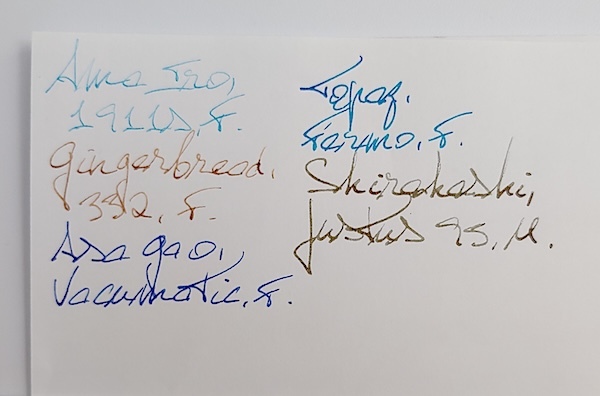 Ama Iro,
1911S, F.
Gingerbread,
352, F.
Asa gao,
Vacumatic, F.
Topaz.
Fermo, F.
Shirakashi,
Justus 95, M.